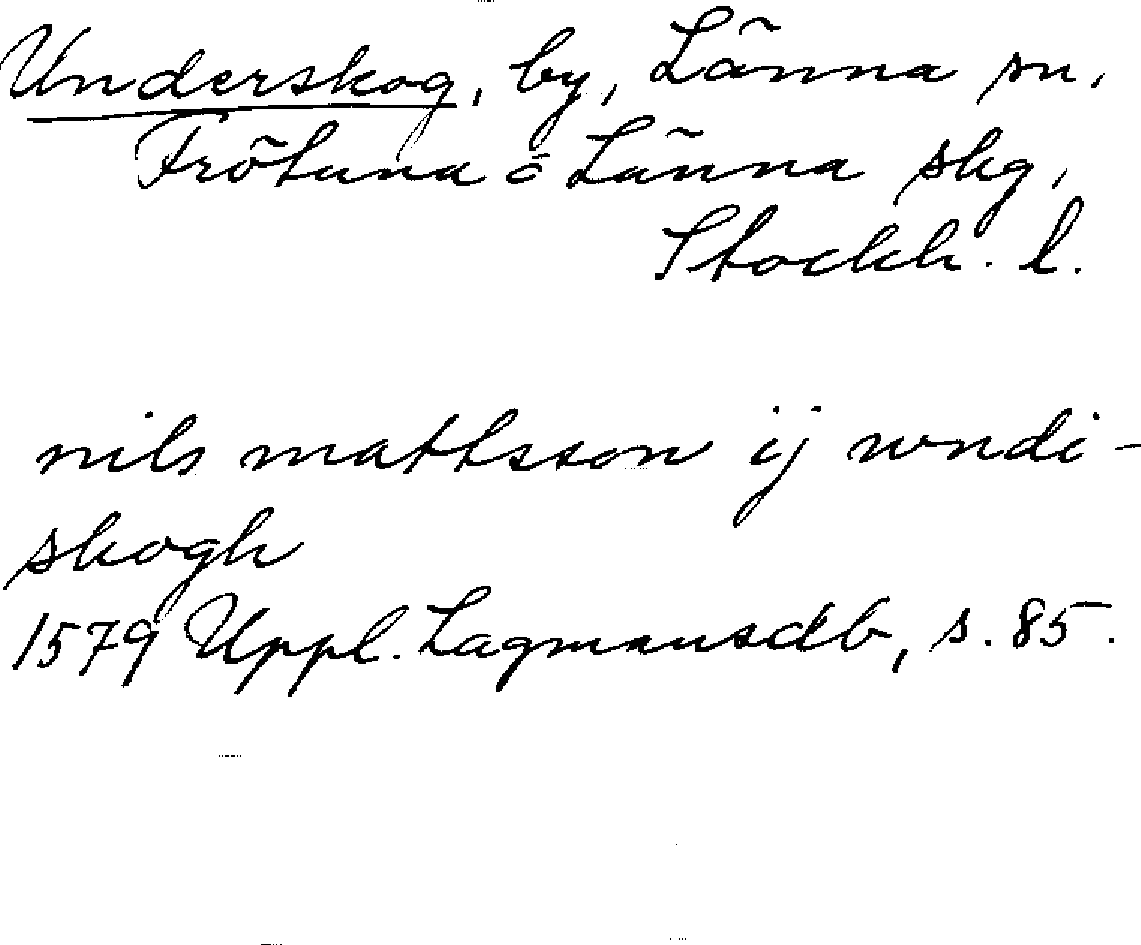 Underskog, by, Länna sn,
Frötuna o Länna skg,
Stockh. l.
nils mattsson ij wndi-
skogh
1579 Uppl. Lagmansdb, s. 85.